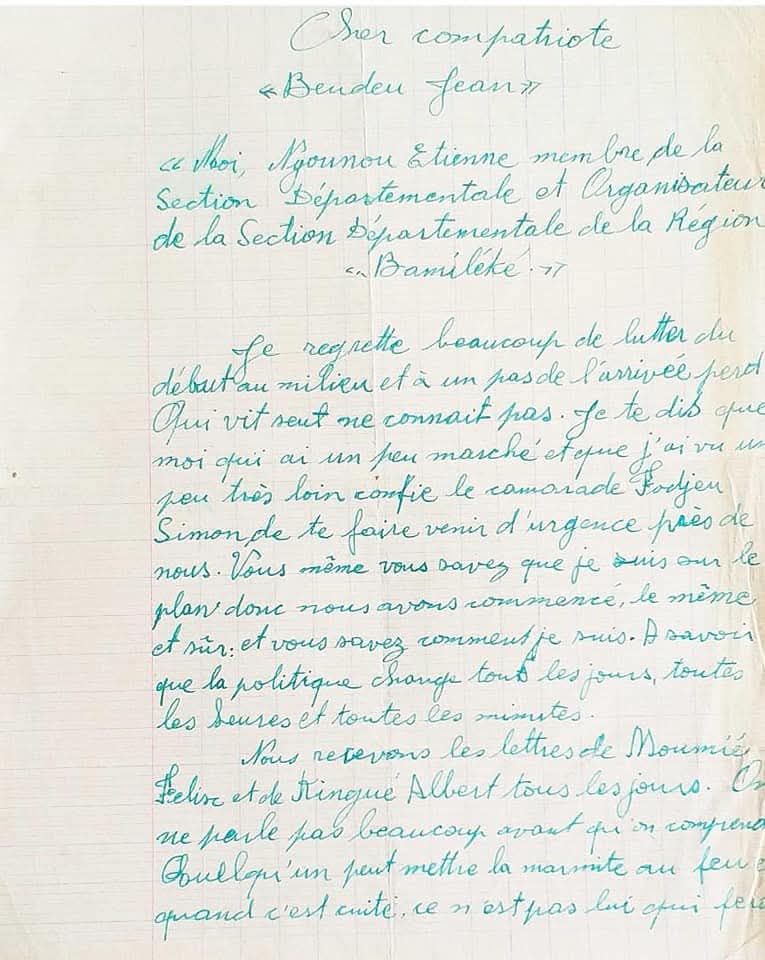 Cher compatriote
« Beudeu Jean »
« Moi, Ngounou Etienne membre de la
Section Départementale et Organisateur
de la Section Départementale de la Région
« Bamiléké. »
Je regrette beaucoup de lutter du
début au milieu et à un pas de l'arrivée perd
Qui vit seul ne connait pas. Je te dis que
moi qui ai un peu marché et que j'ai vu un
peu très loin confie le camarade Fodjeu
Simon, de te faire venir d'urgence près de
nous. Vous même vous savez que je suis sur le
plan donc nous avons commencé, le même
et sûr: et vous savez comment je suis. A savoir
que la politique change tous les jours, toutes
les heures et toutes les minutes.
Nous recevons les lettres de Moumié
Felise et de Kingué Albert tous les jours. On
ne parle pas beaucoup avant qu'on comprend
Quelqu'un peut mettre la marmite au feu e
quand c'est cuité, ce n'est pas lui qui fera